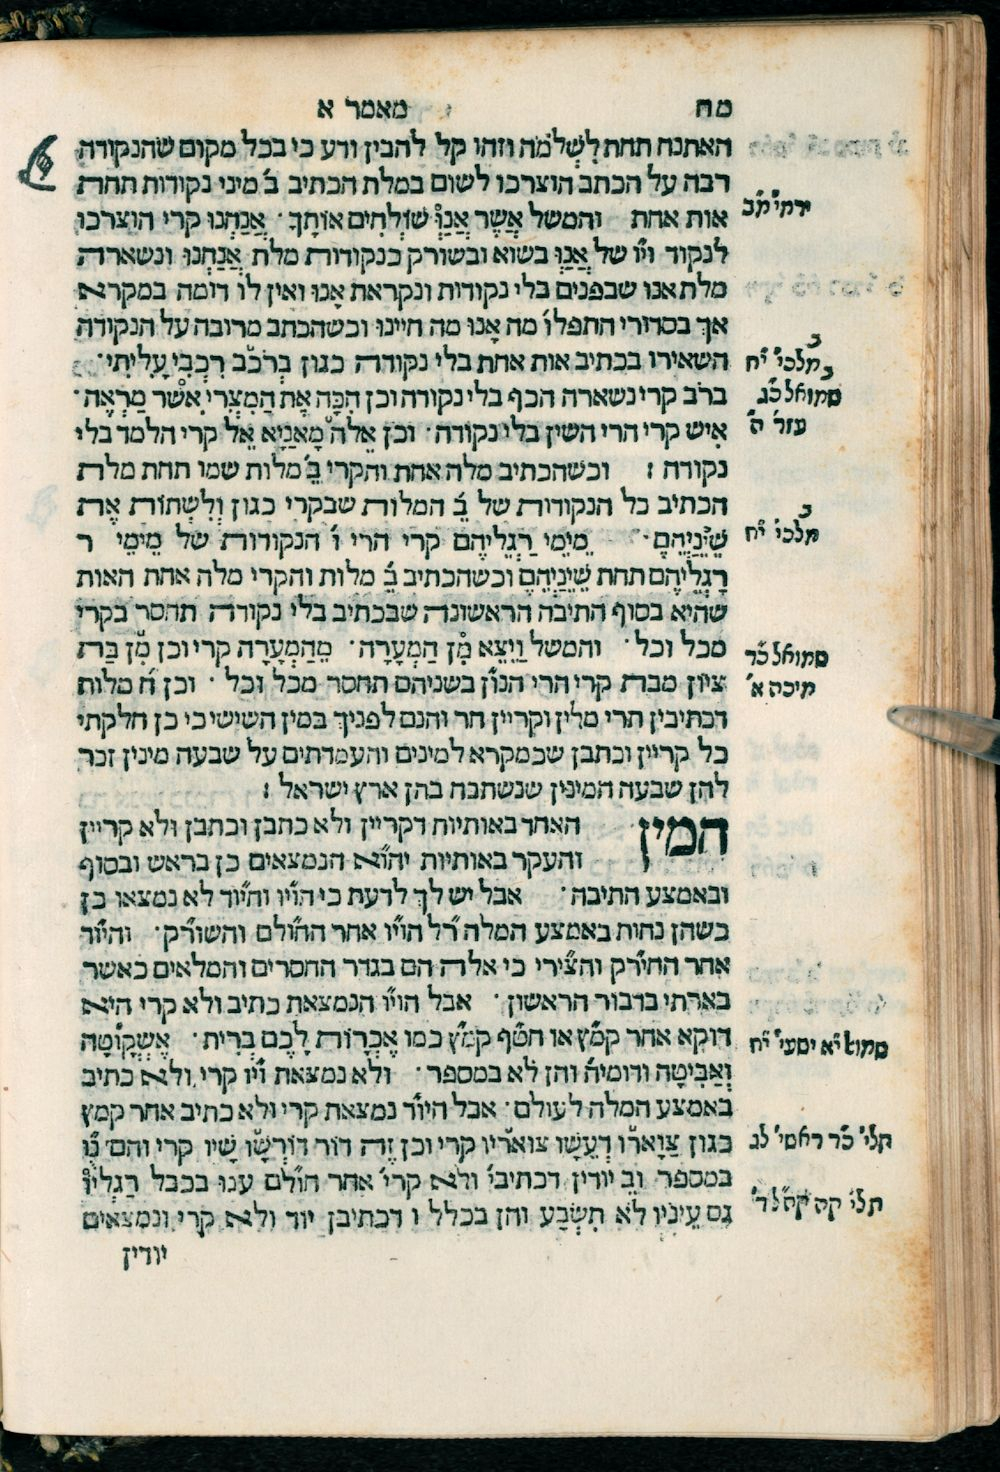 מח מאמר א
האתנח תחת לִשְׁלֹמֹה וזהו קל להבין ודע כי בכל מקום שהנקודה
רבה על הכתב הוצרכו לשום במלת הכתיב ב׳ מיני נקודות תחת
אות אחת והמשל אֲשֶׁר אֲנַוְּ שׁוֹלְחִים אוֹתָךְ · אֲנַחְנוּ קרי הוצרכו
ירמי׳ מ״ב
לנקוד וי״ו של אֲנַוְּ בשוא ובשורק כנקודות מלת אֲנַחְנוּ ונשארה
מלת אנו שבפנים בלי נקודות ונקראת אָנוּ ואין לו דומה במקרא
אך בסדורי התפלו׳ מה אָנוּ מה חיינו וכשהכתב מרובה על הנקודה
השאירו בכתיב אות אחת בלי נקודה כגון בְּרֹכֿב רִכְבִּי עָלִיתִי ·
ב מלכי׳ י״ח
ברֹב קרי נשארה הכף בלי נקודה וכן הִכָּה אֶת הַמִצְרִי אשר מַרְאֶה ·
ב סמואל כ״ג
אִישׁ קרי הרי השין בלי נקודה · וכן אֵלֶה מָאנַיָא אֵל קרי הלמד בלי
עזר׳ ה׳
נקודה : וכשהכתיב מלה אחת והקרי ב׳ מלות שמו תחת מלת
הכתיב כל הנקודות של ב׳ המלות שבקרי כגון וְלִשְׁתּוֹת אֶת
שֵׁינֵיהֶם · מֵימֵי רַגְלֵיהֶם קרי הרי ו׳ הנקודות של מֵימֵי ר
ב מלכי׳ י״ח
רַגְלֵיהֶם תחת שֵׁינֵיהֶם וכשהכתיב ב׳ מלות והקרי מלה אחת האות
שהיא בסוף התיבה הראשונה שבכתיב בלי נקודה תחסר בקרי
מכל וכל · והמשל וַיֵצֵא מִן הַמְעָרָה · מֵהַמְעָרָה קרי וכן מִן בַּת
סמואל כ״ד
ציון מבת קרי הרי הנו״ן בשניהם תחסר מכל וכל · וכן ח׳ מלות
מיכה א׳
דכתיבין תרי מלין וקריין חד והנם לפניך במין השישי כי כן חלקתי
כל קריין וכתבן שבמקרא למינים והעמדתים על שבעה מינין זכר
להן שבעה המינין שנשתבח בהן ארץ ישראל :
המין האחד באותיות דקריין ולא כתבן וכתבן ולא קריין
והעקר באותיות יהו״א הנמצאים כן בראש ובסוף
ובאמצע התיבה · אבל יש לך לדעת כי הוי״ו והיו״ד לא נמצאו כן
כשהן נחות באמצע המלה ר״ל הוי״ו אחר החולם והשור״ק · והיו״ד
אחר החיר״ק והצירי כי אלה הם בגדר החסרים והמלאים כאשר
בארתי בדבור הראשון · אבל הוי״ו הנמצאת כתיב ולא קרי היא
דוקא אחר קמ״ץ או חט״ף קמ״ץ כמו אֶכְרָוֹת לָכֶם בְּרִית · אֶשְׁקֳוטָה
סמוא׳ י״א ישעי׳ י״ח
וְאַבִּיטָה ודומיה׳ והן ל״א במספר · ולא נמצאת וי״ו קרי ולא כתיב
באמצע המלה לעולם · אבל היו״ד נמצאת קרי ולא כתיב אחר קמץ
כגון צַוָארָו דְעֵשָׂו צואריו קרי וכן זֶה דוֹר דוֹרְשָׁו שָׁיו קרי והם נ״ו
תלי׳ כ״ד ראשי׳ ל״ג
במספר וב׳ יודין דכתיבי׳ ולא קרי׳ אחר חולם ענו בכבל רַגְלָיו
גַם עֵינָיו לֹא תִשְׂבָּע והן בכלל ו׳ דכתיבן יוד ולא קרי ונמצאים
תלי׳ ק״ה קהל׳ ד׳
יודין